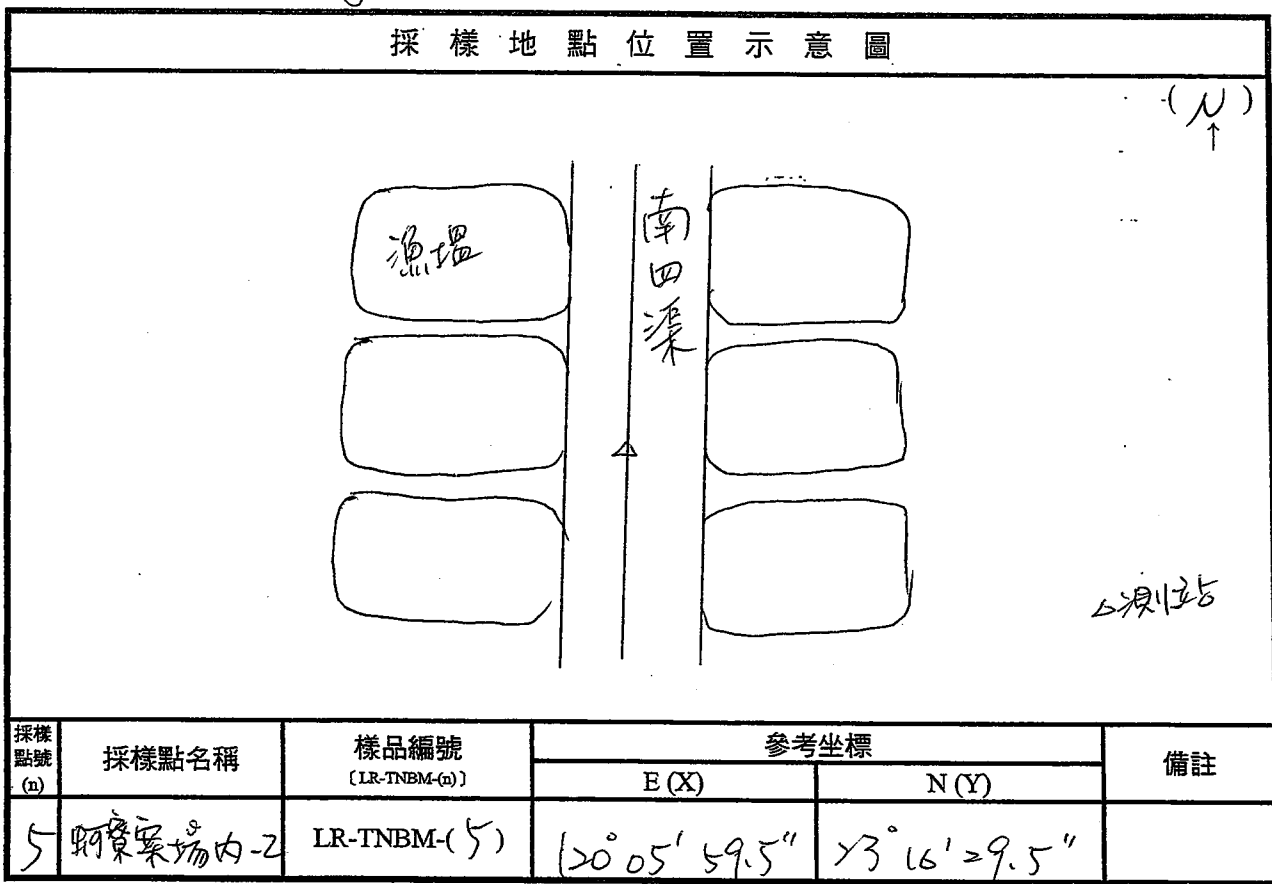 採樣地點位置示意圖
(N)
↑
漁塭
南四渠
△測站
採樣點號(n)
採樣點名稱
樣品編號
〔LR-TNBM-(n)〕
參考坐標
E (X)
N (Y)
備註
5
蚵寮案場內-2
LR-TNBM-(5)
120° 05' 59.5"
23° 16' 29.5"